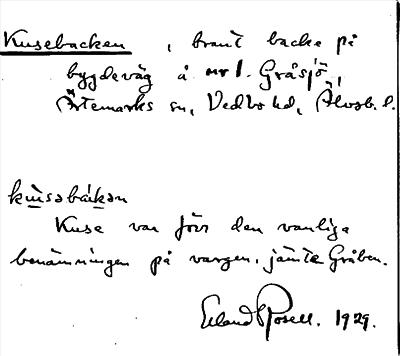 Kusebacken , brant backe på
bygdeväg å nr 1. Gråsjö,
Ärtemarks sn, Vedbo hd, Älvsb. l.
kusabäkan
Kuse var förr den vanliga
benämningen på vargen, jämte Gråben.
Erland Rosell. 1929.